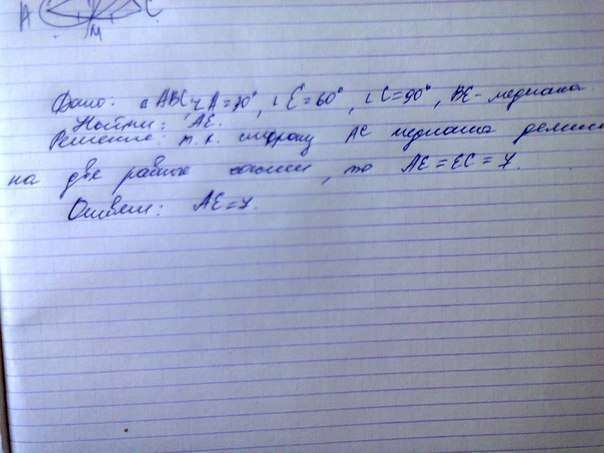 A C
M
Дано: △ABC, ∠A=70°, ∠E=60°, ∠C=90°, BE - медиана
Найти: AE.
Решение: т.к. сторону AC медиана делит
на две равные, то AE = EC = 7.
Ответ: AE=7.